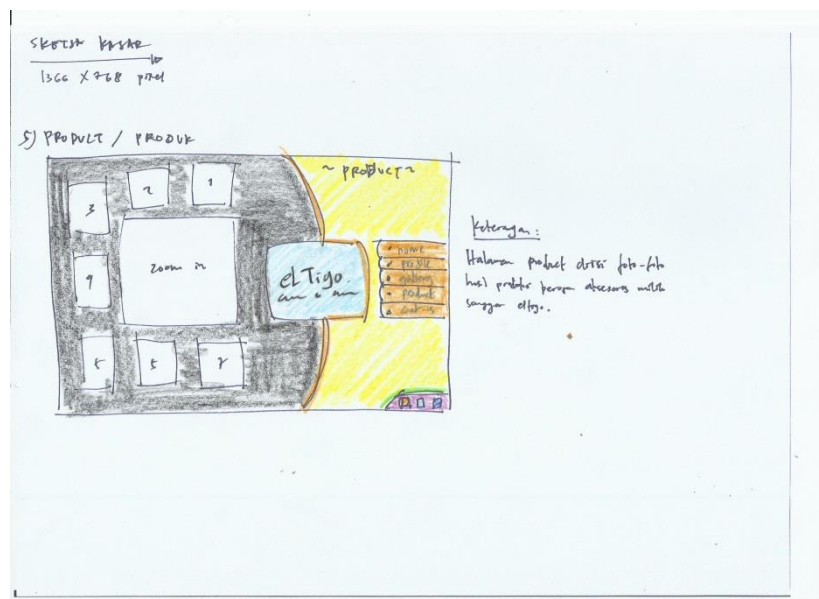 SKETSA KASAR
1366 X 768 pixel
5) PRODUCT / PRODUK
~ PRODUCT ~
1
2
3
zoom in
el Tigo
home
profile
gallery
product
5
Keterangan:
Halaman product diisi foto-foto
hasil produksi berupa aksesoris milik
sanggar eltigo.